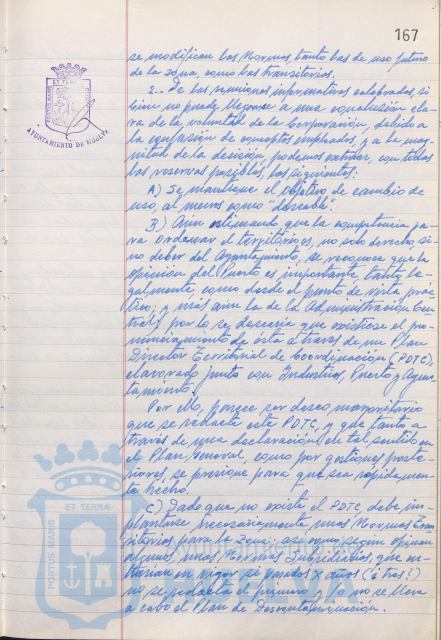 167
se modifican las Normas, tanto las de uso futuro
de la zona, como las transitorias.
2.- De las reuniones informativas celebradas, si
bien no puede llegarse a una conclusión cla-
ra de la voluntad de la Corporación, debido a
la confusión de conceptos empleados y a la mag-
nitud de la decisión, podemos extraer, con todas
las reservas posibles, las siguientes:
A) Se mantiene el objetivo de cambio de
uso, al menos como "deseable".
B) Aún estimando que la competencia pa-
ra ordenar el territorio es, no solo derecho, si-
no deber del Ayuntamiento, se reconoce que la
opinión del Puerto es importante tanto le-
galmente, como desde el punto de vista prác-
tico; y más aún la de la Administración Cen-
tral, por lo se desearía que existiese el pro-
nunciamiento de ésta a través de un Plan
Director Territorial de Coordinación (PDTC),
elaborado junto con Industria, Puerto y Ayun-
tamiento.
Por ello, parece ser deseo mayoritario
que se redacte este PDTC, y que tanto a
través de una declaración de tal sentido en
el Plan General, como por gestiones poste-
riores, se presione para que sea rápidamen-
te hecho.
C) Dado que no existe el PDTC, debe im-
plantarse necesariamente unas Normas Tran-
sitorias para la zona; así como, según opinan
algunos, unas Normas Subsidiarias, que en-
trarían en vigor si pasados X años (¿tres?)
no se redacta el primero y/o no se lleva
a cabo el Plan de Descontaminación.
AYUNTAMIENTO DE HUELVA
PORTUS MARIS
ET TERRA